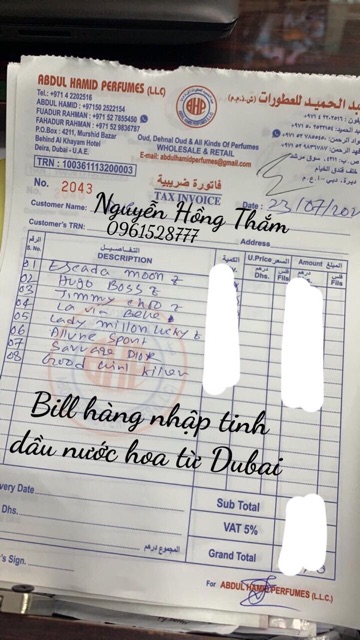 ABDUL HAMID PERFUMES (LLC)
Tel.: +971 4 2202516
ABDUL HAMID : +97150 2522154
FUADUR RAHMAN : +971 52 7855450
FAHADUR RAHMAN : +971 52 9836787
P.O.Box : 4211, Murshid Bazar
Behind Al Khayam Hotel
Deira, Dubai - U.A.E.
TRN : 100361113200003
AHP
الحميد للعطورات (ش.ذ.م.م)
Oud, Dehnal Oud & All Kinds Of Perfumes
WHOLESALE & RETAIL
E-mail: abdulhamidperfumes@gmail.com
No. 2043
فاتورة ضريبية
TAX INVOICE
Date : 23/07/
Customer Name:
Nguyễn Hồng Thắm
Customer's TRN:
0961528777
Address
الرقم التفاصيل الكمية السعر U.Price المبلغ Amount
S. No. DESCRIPTION درهم Dhs. فلس Fils درهم فلس Fils
01 Escada moon 2
02 Hugo Boss 2
03 Jimmy choo 2
04 La via Belle
05 Lady millon Lucky
06 Allure Sport
07 Sauvage Dior
08 Good kilier
Bill hàng nhập tinh
dầu nước hoa từ Dubai
very Date
Dhs.
المجموع درهم
Sub Total
VAT 5%
Grand Total
's Sign.
For ABDUL HAMID PERFUMES (L.L.C.)